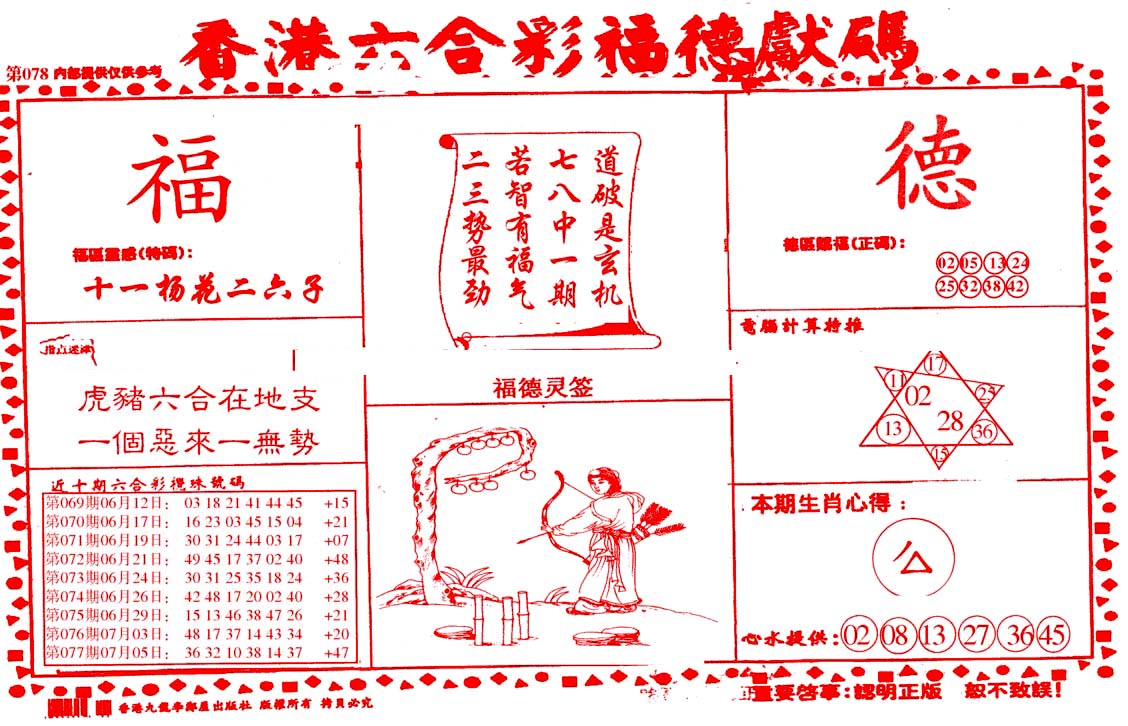 香港六合彩福德獻碼
第078 内部提供仅供参考
福
福區靈感(特碼):
十一杨花二六子
道破是玄机
七八中一期
若智有福气
二三势最劲
德
德區賜福(正碼):
02 05 13 24
25 32 38 42
指点迷津
虎豬六合在地支
一個惡來一無勢
福德灵签
電腦計算特推
17
11
02
25
28
13
36
15
近十期六合彩攪珠號碼
第069期06月12日: 03 18 21 41 44 45 +15
第070期06月17日: 16 23 03 45 15 04 +21
第071期06月19日: 30 31 24 44 03 17 +07
第072期06月21日: 49 45 17 37 02 40 +48
第073期06月24日: 30 31 25 35 18 24 +36
第074期06月26日: 42 48 17 20 02 40 +28
第075期06月29日: 15 13 46 38 47 26 +21
第076期07月03日: 48 17 37 14 43 34 +20
第077期07月05日: 36 32 10 38 14 37 +47
本期生肖心得:
心水提供: 02 08 13 27 36 45
重要啓事:認明正版 恕不致誤!
版權所有 拷貝必究